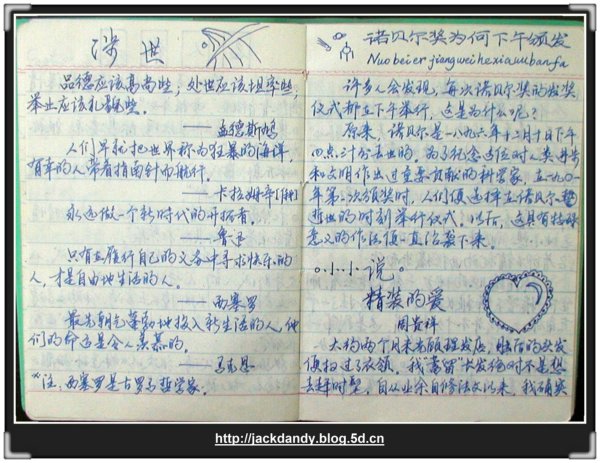 涉世
品德应该高尚些，处世应该坦率些，
举止应该礼貌些。
——孟德斯鸠
人们早就把世界称为狂暴的海洋，
有幸的人带着指南针而航行。
——卡拉姆辛
永远做一个新时代的开拓者。
——鲁迅
只有在履行自己的义务中寻求快乐的
人，才是自由地生活的人。
——西塞罗
最先朝气蓬勃地投入新生活的人，他
们的命运是令人羡慕的。
*注：西塞罗是古罗马哲学家。
诺贝尔奖为何下午颁发
Nuobeier jiangweihexiawubanfa
许多人会发现，每次诺贝尔奖的发奖
仪式都在下午举行，这是为什么呢？
原来，诺贝尔是一八九六年十二月十日下午
四点三十分去世的。为了纪念这位对人类进步
和文明作出过重要贡献的科学家，在一九〇一
年第一次颁奖时，人们便选择在诺贝尔
逝世的时刻举行仪式。以后，这具有特殊
意义的作法便一直沿袭下来。
小小说
精装的爱
周贵祥
大约两个月来
便扫过了衣领。我"蓄留"长发绝对不是想
去赶时髦。自从业余自修法文以来，我确实
http://jackdandy.blog.5d.cn